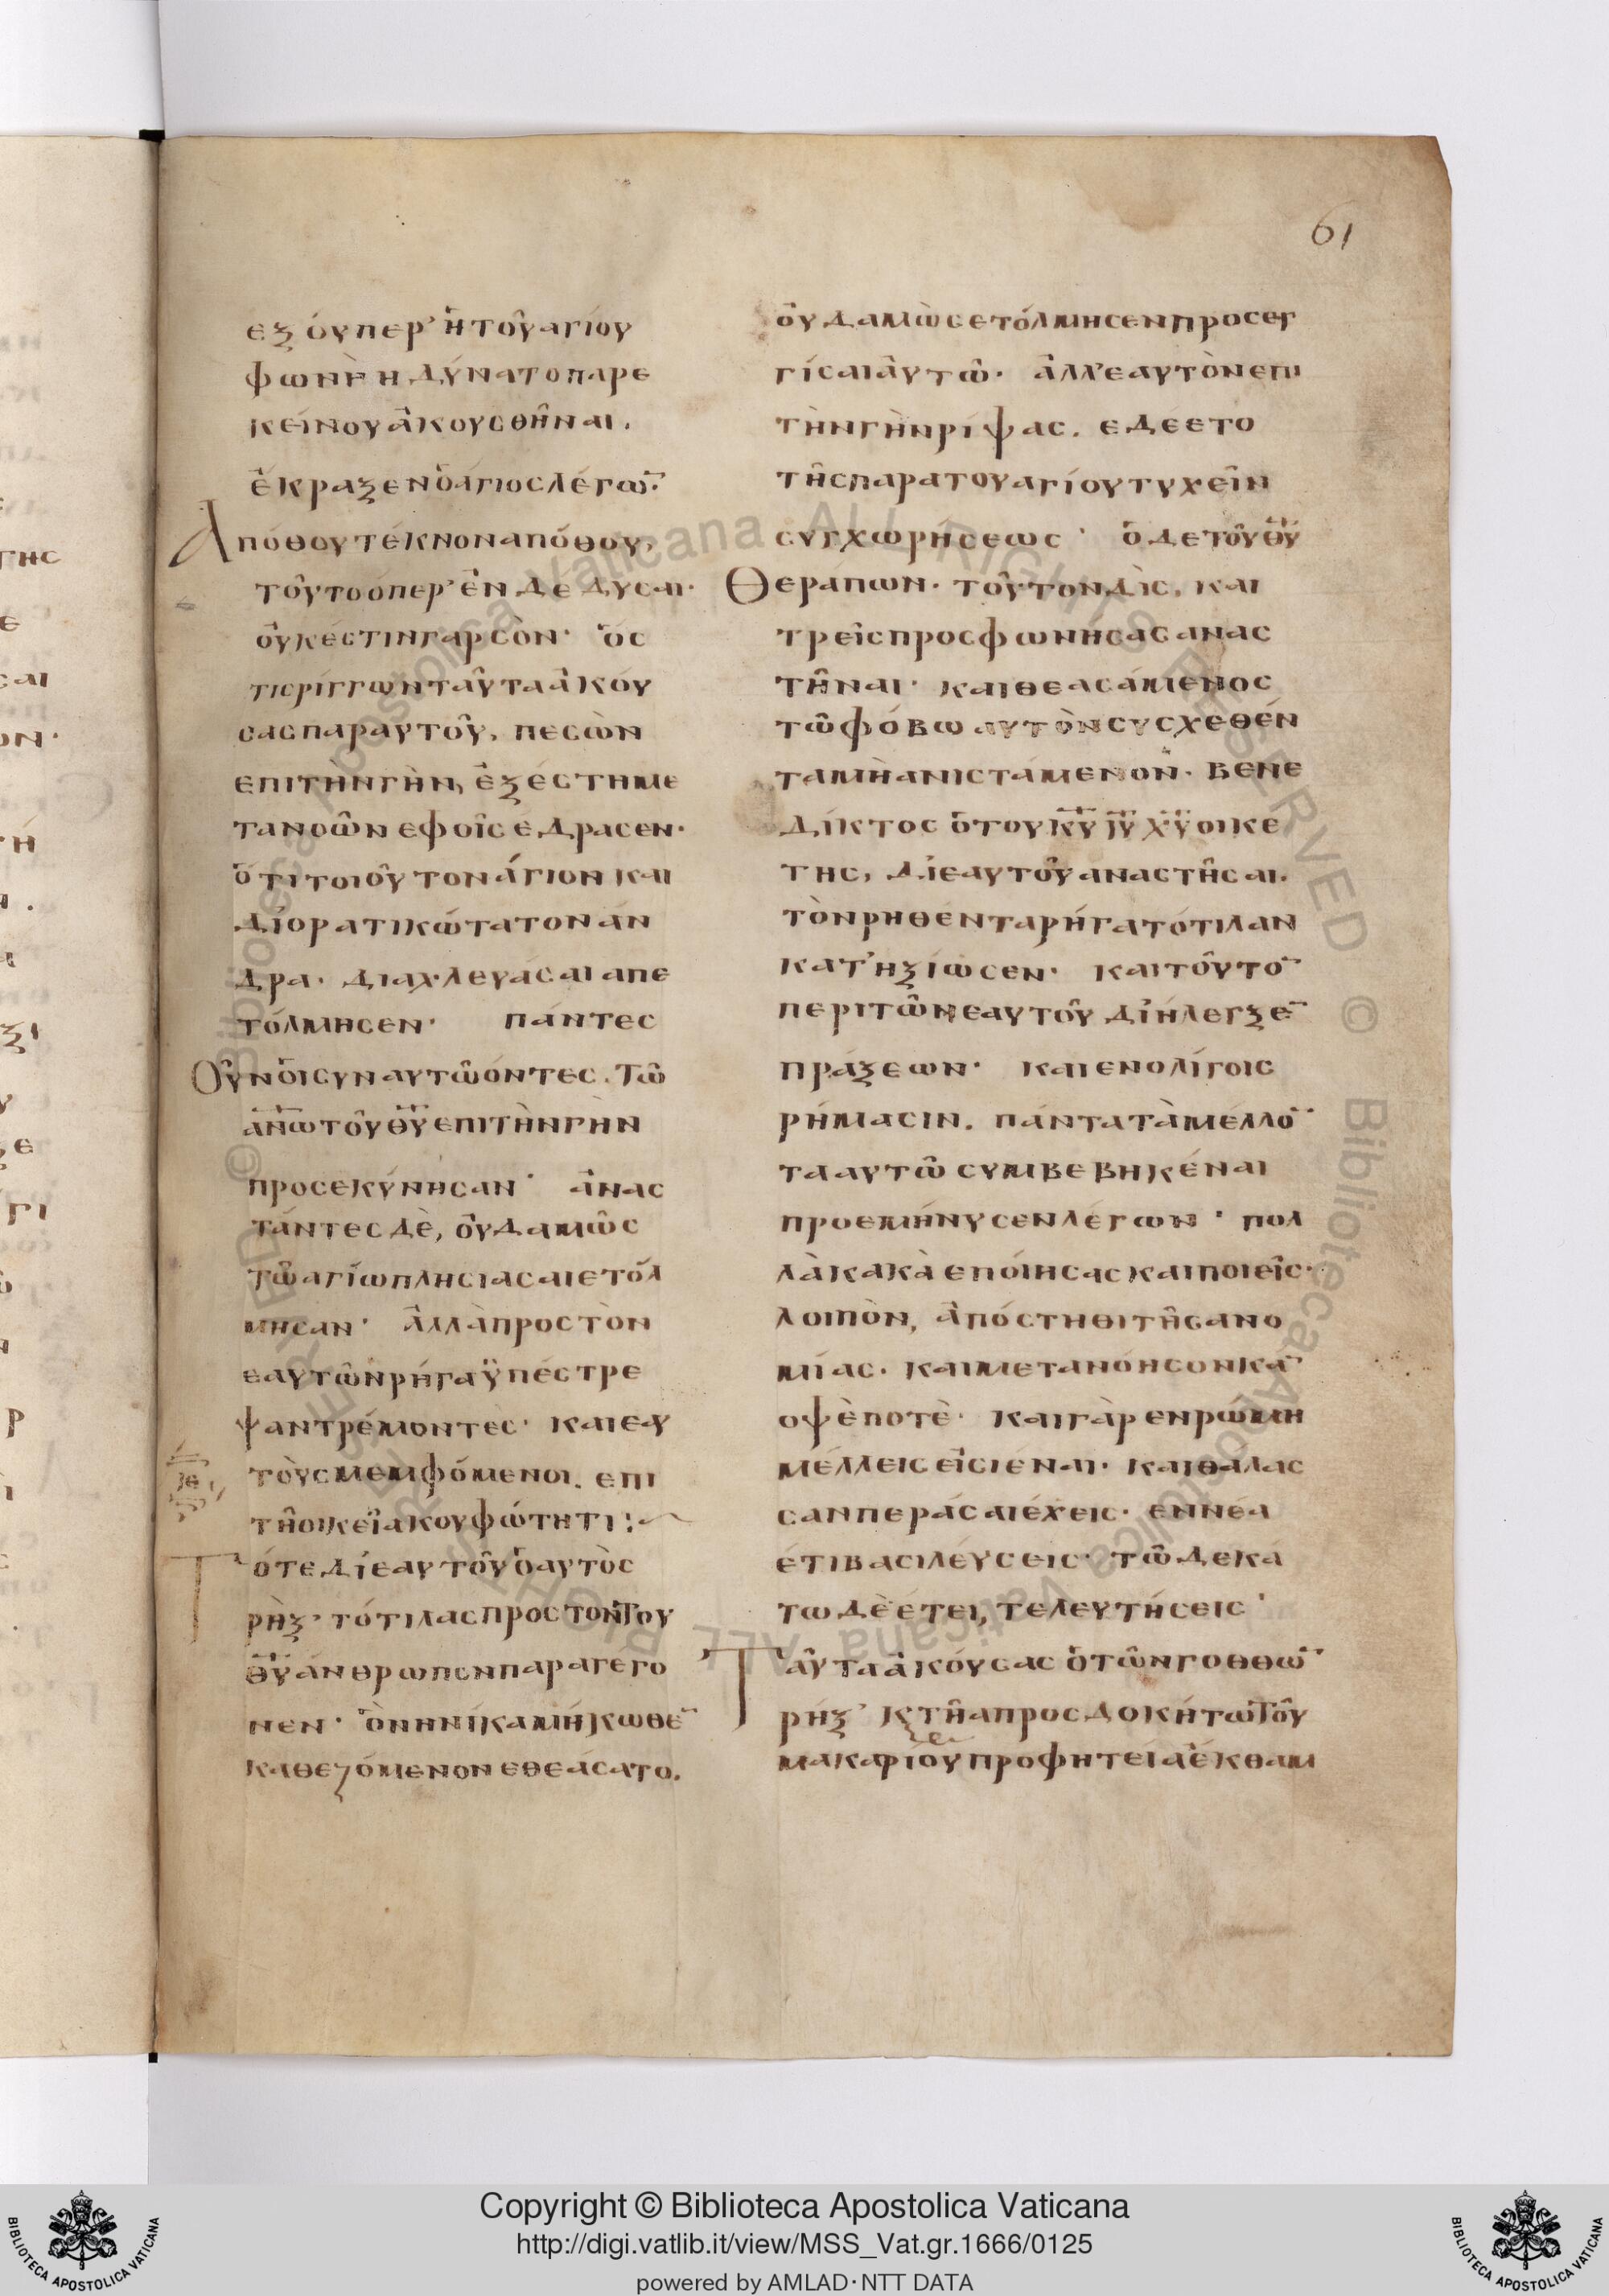 61
εξ όυπερ' ἡ τοῦ αγίου
φωνὴ ηδύνατο παρε
κείνου ἀκουσθῆναι.
ἔκραξεν ὁ άγιος λέγω̅·
Απόθου τέκνον απόθου,
τοῦτο όπερ' ἐνδέδυσαι·
οὐκέστιν γαρ σὸν· ὅς
τις ρίγγων ταῦτα ἀκού
σας παραυτοῦ, πεσὼν
επι τὴν γὴν, ἐξέστη με
τανοῶν εφ οῖς έδρασεν·
ὅτι τοιοῦτον άγιον και
διορατικώτατον άν
δρα· διαχλευάσαι απε
τόλμησεν· πάντες
Οὖν ὁι συν αυτῶ όντες. Τῶ
ἀν̅ω̅ τοῦ θ̅υ̅ επι τὴν γὴν
προσεκύνησαν· ἀνασ
τάντες δὲ, οὐδαμῶς
τῶ αγίω πλησιασαι ετόλ
μησαν· ἀλλὰ προς τὸν
εαυτῶν ρήγα ϋπέστρε
ψαν τρέμοντὲς· και εαυ
τοὺς μεμφόμενοι. επι
ιε
τῆ οικεία κουφώτητι:
Τότε δι εαυτοῦ ὁ αυτὸς
ρὴξ· τότιλας προς τὸν του
θ̅υ̅ άνθρωπον παραγεγο
νεν· ὁν ηνίκα μήκωθε̅
καθεζόμενον εθεάσατο.
οὐδαμὼς ετόλμησεν προσεγ
γίσαι ἀυτῶ· ἀλλ' εαυτὸν επι
τὴν γὴν ρίψας. εδέετο
τῆς παρα του αγίου τυχεῖν
συγχωρήσεως· ὁ δε τοῦ θ̅υ̅
Θεράπων. τοῦτον δὶς, και
τρεῖς προσφωνήσας ανασ
τῆναι· και θεασάμενος
τῶ φόβω αυτὸν συσχεθέν
τα μὴ ανιστάμενον· βενε
δίκτος ὁ του κ̅υ̅ ι̅υ̅ χ̅υ̅ οικε
της, δι εαυτοῦ αναστῆσαι.
τὸν ρηθέντα ρήγα τότιλαν
κατ' ηξίωσεν· και τοῦτο̅
περι τῶν εαυτοῦ διήλεγξε̅
πράξεων· και εν ολίγοις
ρήμασιν. πάντα τὰ μέλλο̅
τα αυτῶ συμβεβηκέναι
προεμήνυσεν λέγων· πολ
λὰ κακὰ επόιησας και ποιεῖς·
λοιπὸν, ἀπόστηθι τῆς ανο
μίας. και μετανόησον κα̅
οψὲ ποτὲ· και γὰρ εν ρώμη
μέλλεις εἰσιέναι· και θαλασ
σαν περάσαι έχεις· εννέα
έτι βασιλεύσεις· τῶ δεκα
τω δὲ έτει, τελευτήσεις·
Ταῦτα ἀκούσας ὁ τῶν γοθθω̅
ρήξ' κ̅ τῆ απροσδοκήτω τοῦ
μακαρίου προφητεία ἐκθαμ
Copyright © Biblioteca Apostolica Vaticana
http://digi.vatlib.it/view/MSS_Vat.gr.1666/0125
powered by AMLAD·NTT DATA